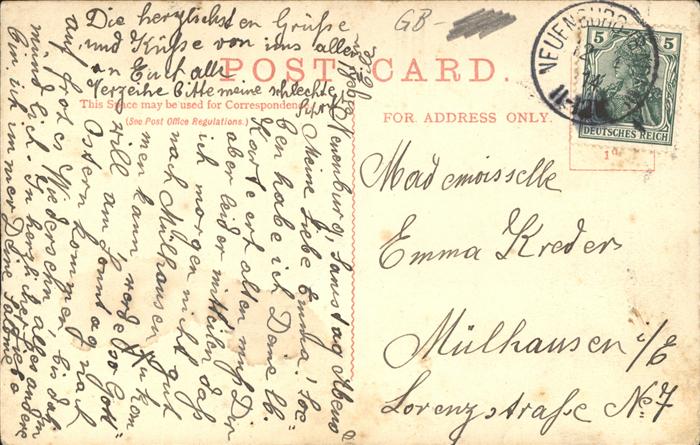 Die herzlichsten Grüße
und Küsse von uns allen
an Euch alle
Verzeihe bitte meine schlechte
GB-
POST CARD.
This Space may be used for Correspondence
(See Post Office Regulations.)
FOR ADDRESS ONLY.
NEUENBURG
5 5
DEUTSCHES REICH
Mademoisselle
Emma Kreder
Mülhausen i/E
Lorenzstraße No 7
Neuenburg, Samstag Abend
Meine liebe Emma! Soe
ben habe ich Deine lb.
Karte erhalten muß Dir
aber leider mitteilen daß
ich morgen nicht gut
nach Mülhausen kom
men kann, werde
will am Sonntag nach
Ostern kommen. Bis da
auf frohes Wiedersehn, alles andere
mündlich. In herzlicher Liebe
bin ich immer Deine Salome